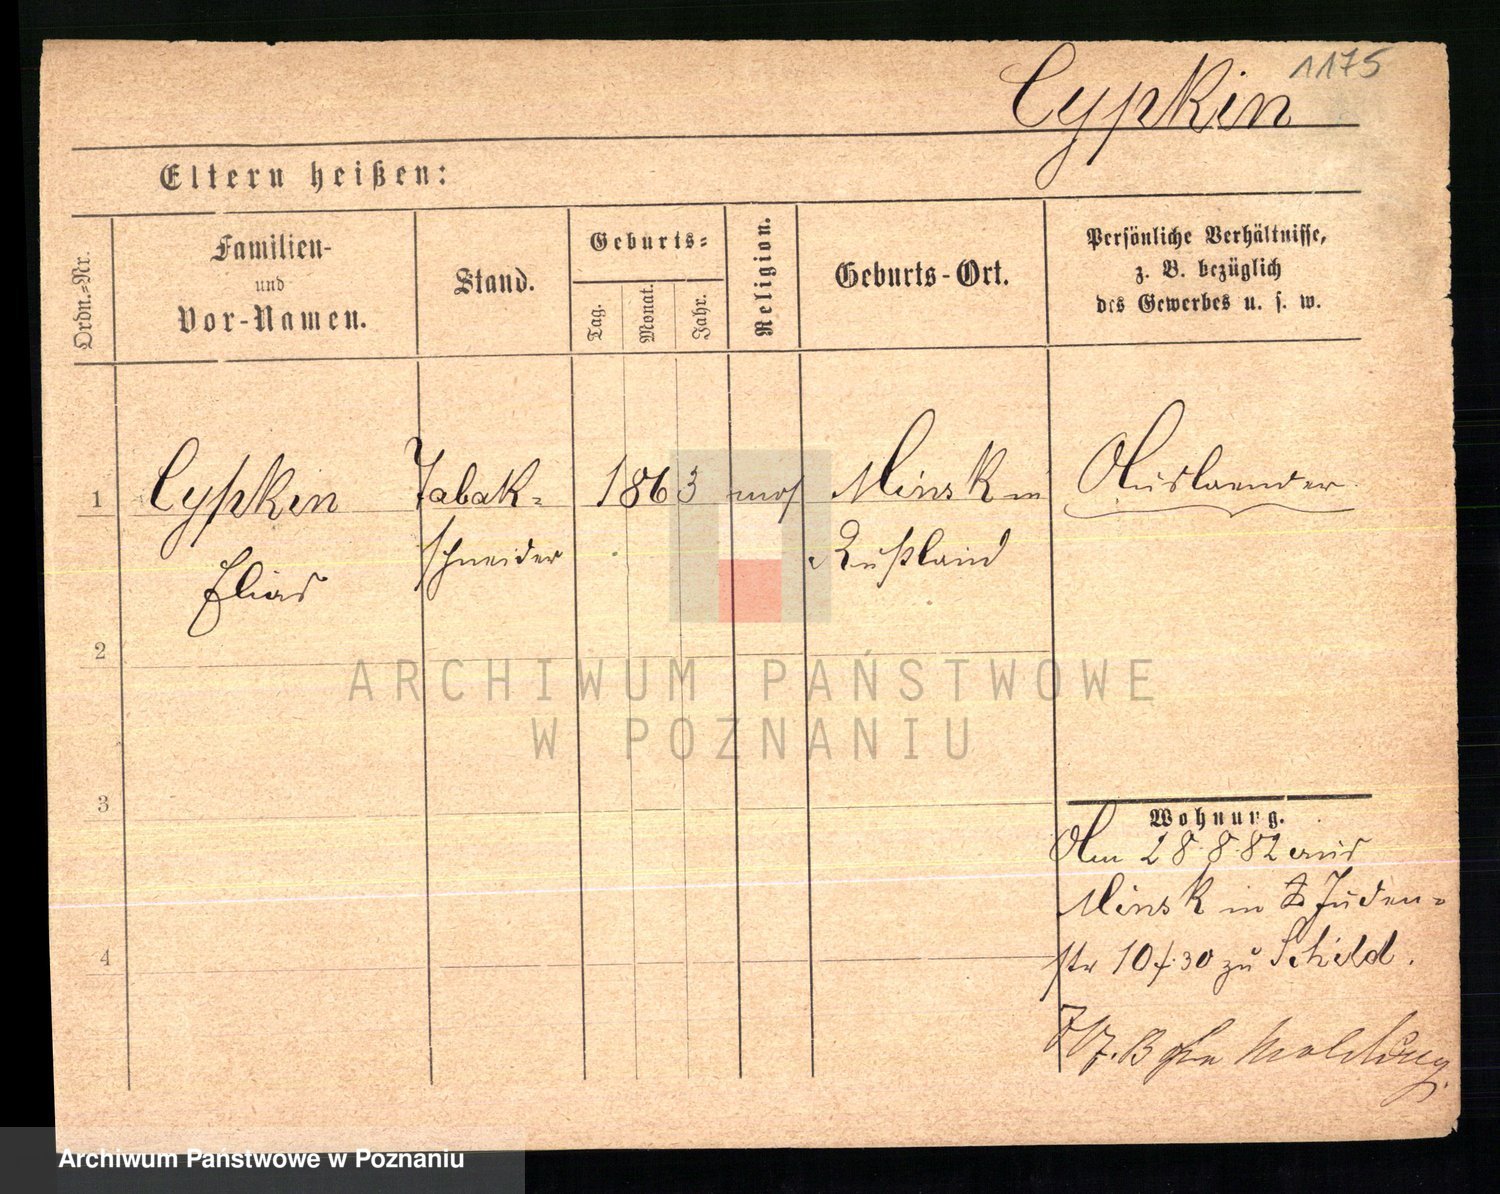 Cypkin 1175
Eltern heißen:
Ordn.-Nr.
Familien-
und
Vor-Namen.
Stand.
Geburts-
Tag.
Monat.
Jahr.
Religion.
Geburts-Ort.
Persönliche Verhältnisse,
z. B. bezüglich
des Gewerbes u. s. w.
1 Cypkin Tabak- 1863 mos Minsk in Auslaender
Elias schneider Rußland
2
3
4
Wohnung.
Am 28.8.82 aus
Minsk in Juden-
str 10/30 zu Schild.
Meldung
ARCHIWUM PAŃSTWOWE
W POZNANIU
Archiwum Państwowe w Poznaniu